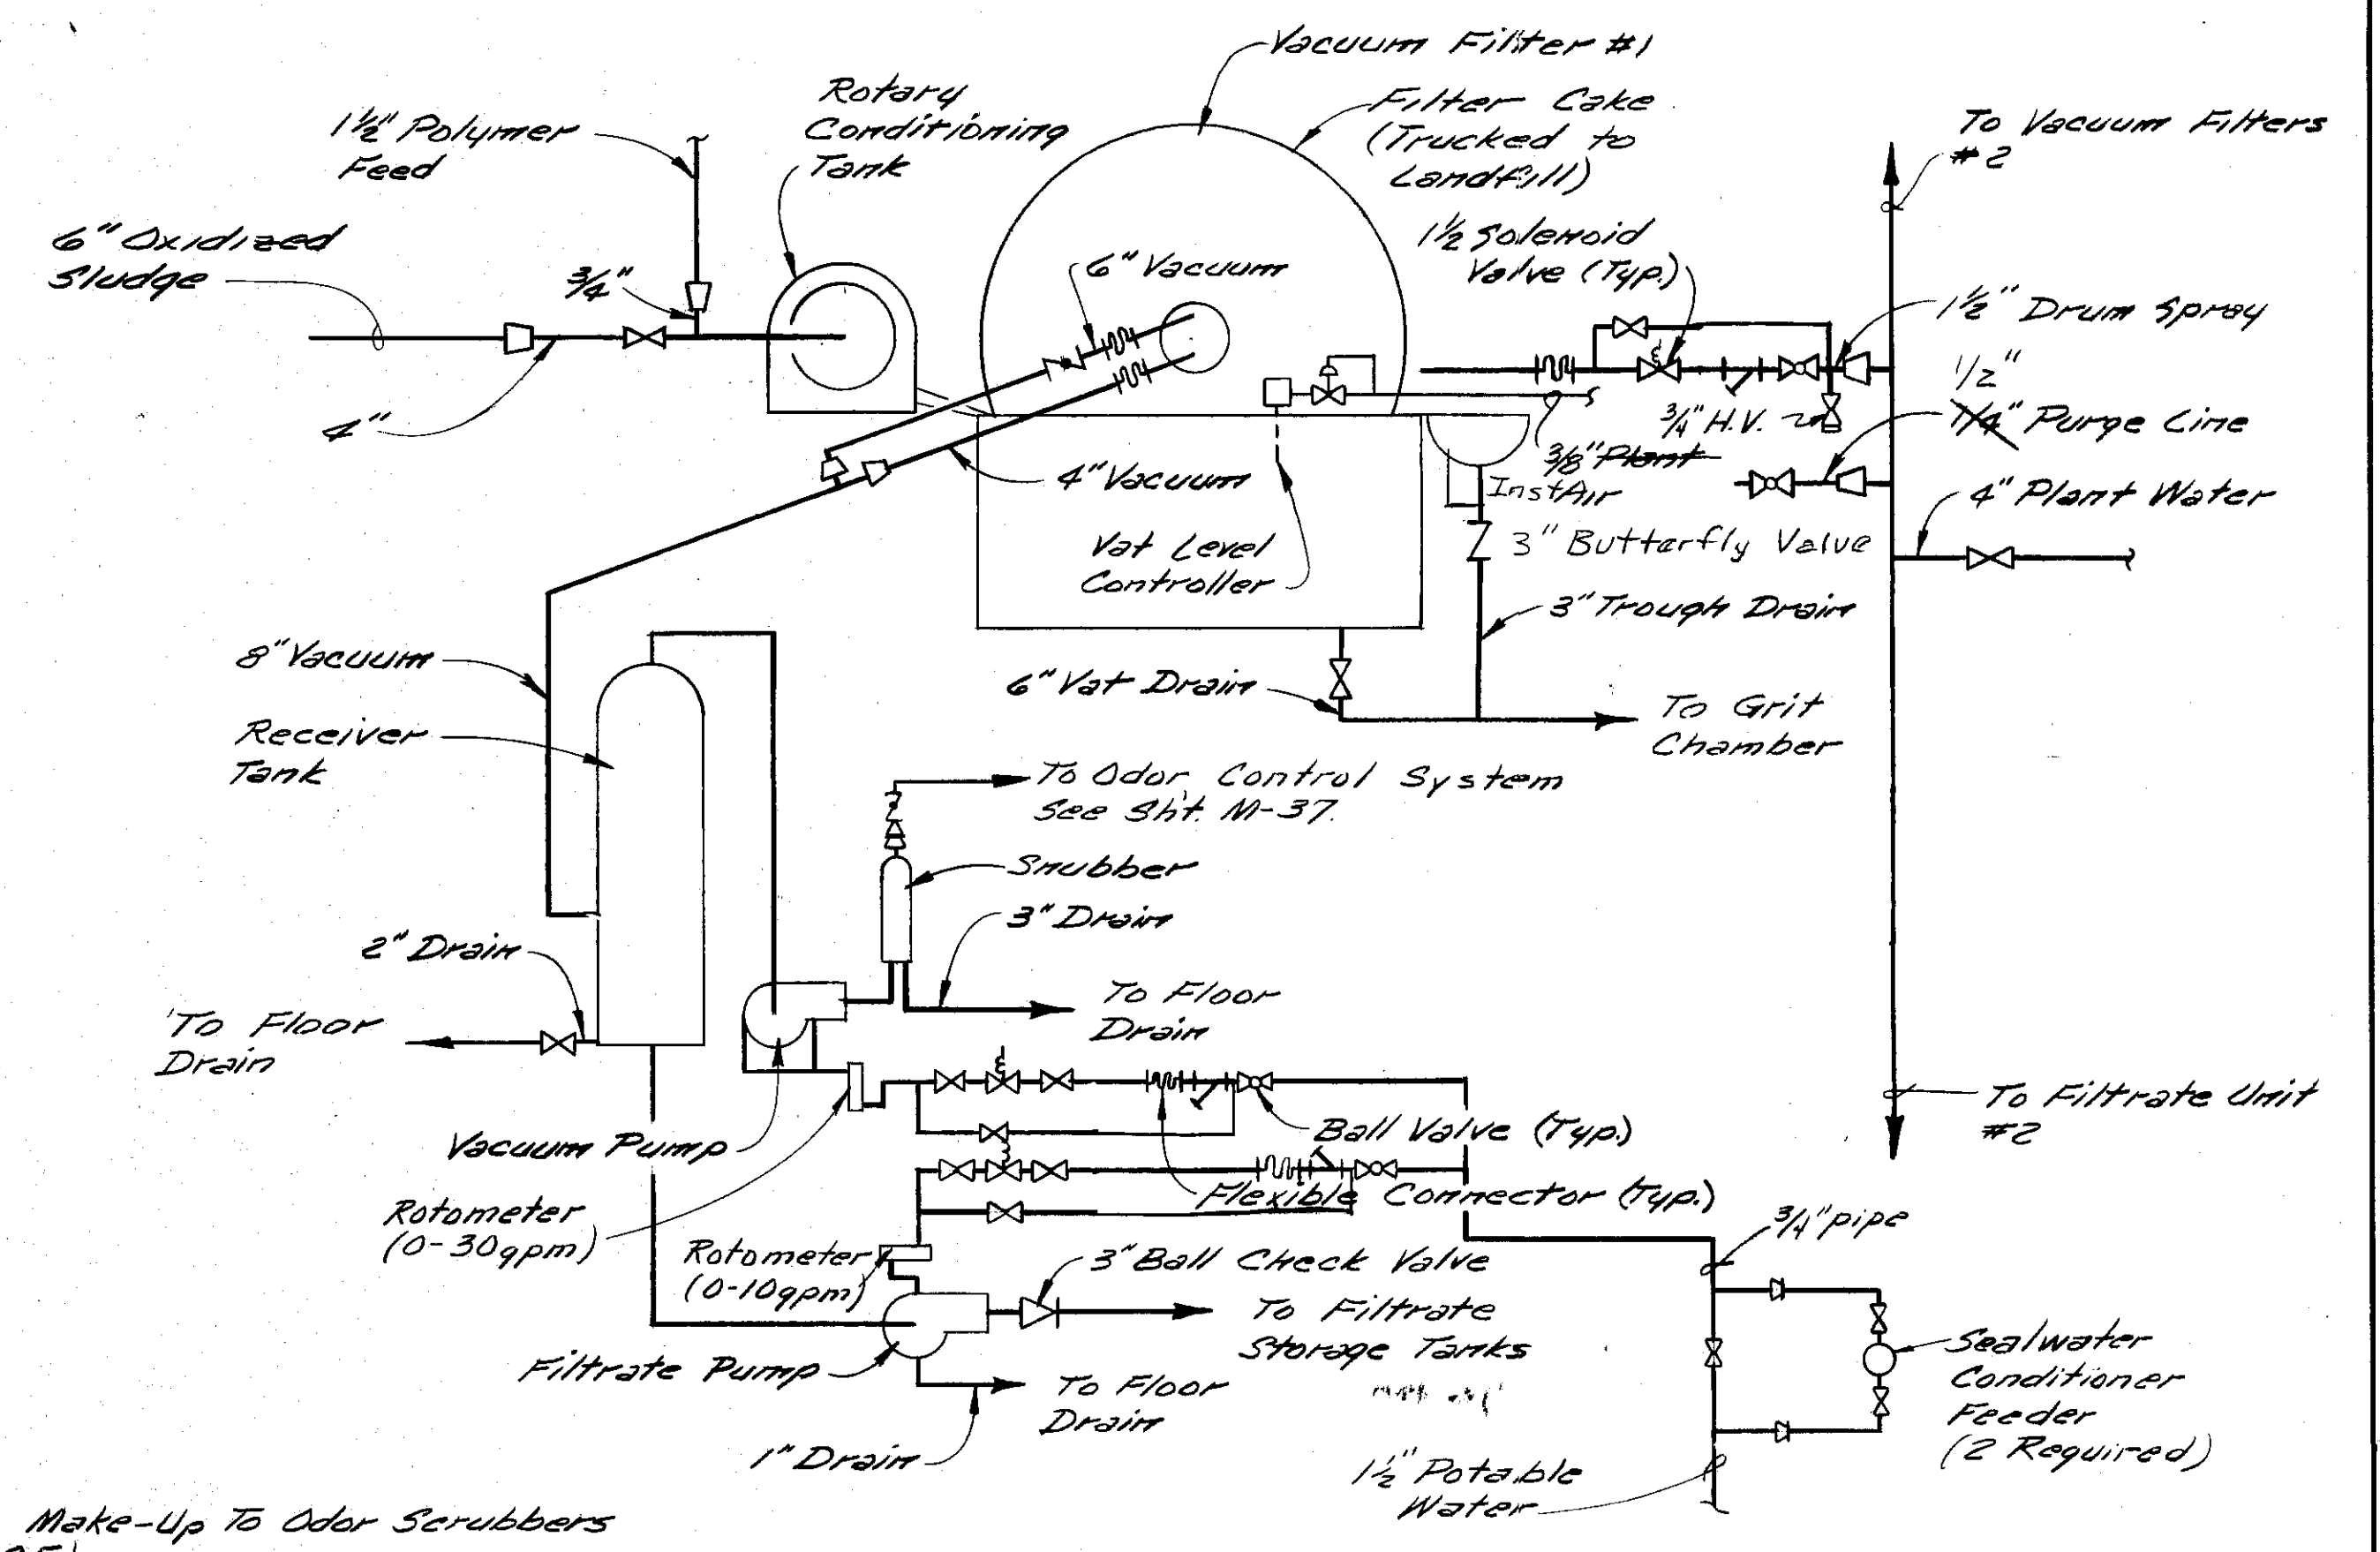 Vacuum Filter #1
Rotary
Conditioning
Tank
Filter Cake
(Trucked to
Landfill)
1½" Polymer
Feed
To Vacuum Filters
#2
6" Oxidized
Sludge
¾"
4"
6" Vacuum
1½ Solenoid
Valve (Typ.)
1½" Drum Spray
1/2"
1/4" Purge Line
¾" H.V.
3/8" Plant
Inst Air
4" Vacuum
4" Plant Water
Vat Level
Controller
3" Butterfly Valve
3" Trough Drain
8" Vacuum
6" Vat Drain
To Grit
Chamber
Receiver
Tank
To Odor Control System
See Sht. M-37.
Snubber
3" Drain
2" Drain
To Floor
Drain
To Floor
Drain
To Filtrate Unit
#2
Vacuum Pump
Ball Valve (Typ.)
Flexible Connector (Typ.)
Rotometer
(0-30gpm)
Rotometer
(0-10gpm)
3" Ball Check Valve
¾" pipe
To Filtrate
Storage Tanks
Filtrate Pump
To Floor
Drain
1" Drain
Sealwater
Conditioner
Feeder
(2 Required)
1½" Potable
Water
Make-Up To Odor Scrubbers